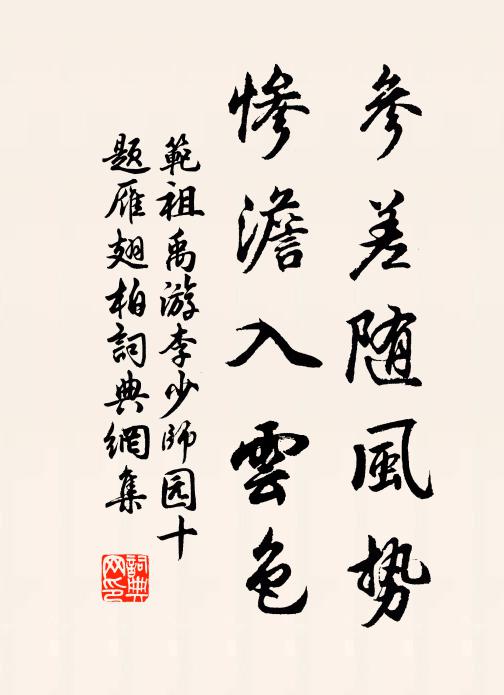 參差随風勢
慘澹入雲色
範祖禹游李少師园十
题雁翅柏詞典網集
詞典网印